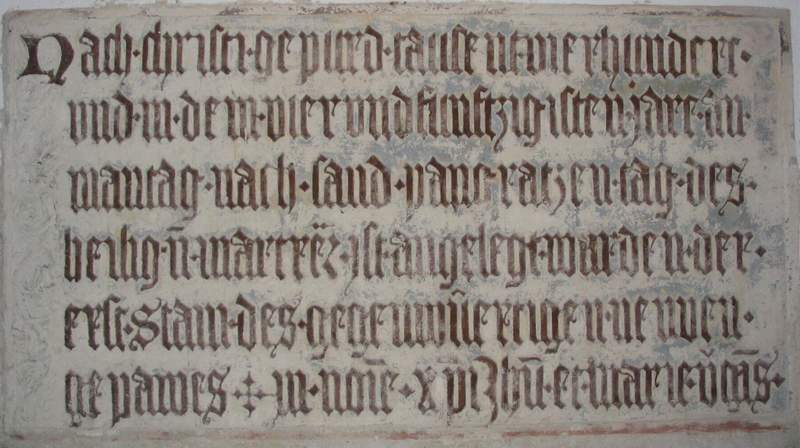 Nach·christi·gepurd·tausent·vierhundert·
vnd·in·dem·vier·vnd·funftzigisten·jare·am·
mantag·nach·sand·pangratzen·tag·des·
heilign̄·martrër·ist·angelegt·warden·der·
erst·Stain·des·gegenwürtigen·newen·
gepawes ✣ in·noīe·xp̄i·Jhū·et·marie·v̄gīs·